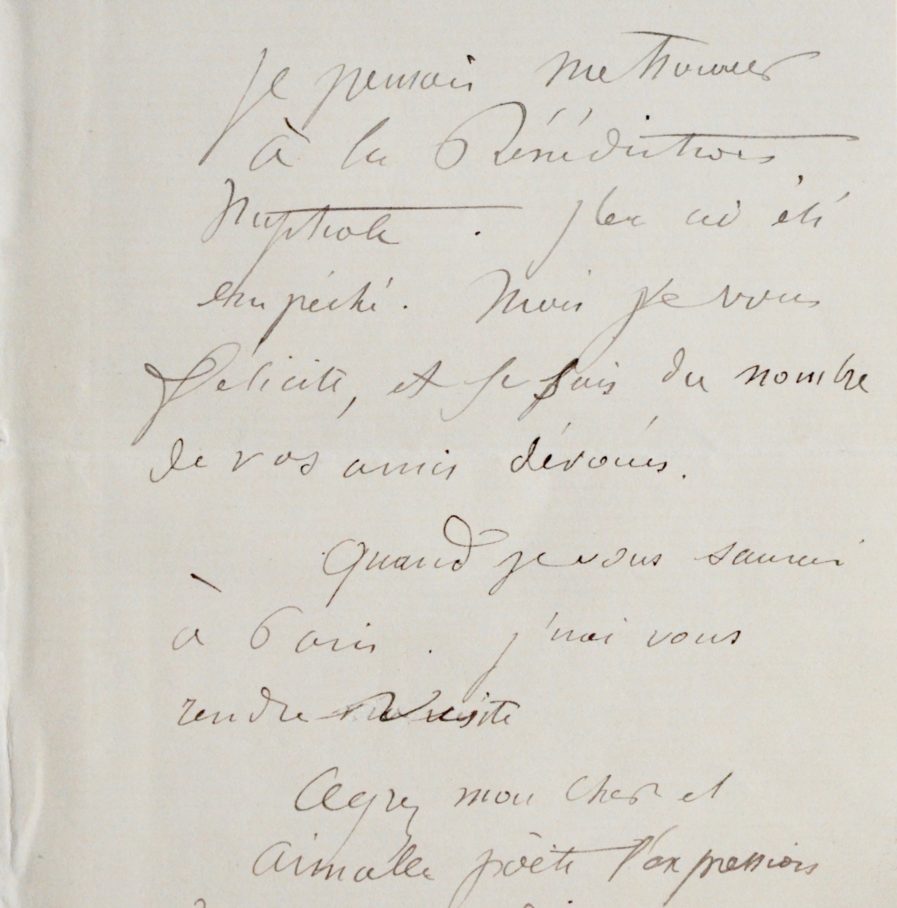 Je pensais me trouver
à la Bénédiction
Nuptiale. J'en ai été
empêché. Mais je vous
félicite, et je suis du nombre
de vos amis dévoués.
Quand je vous saurai
à Paris. j'irai vous
rendre visite
Agréez mon cher et
aimable poète l'expression